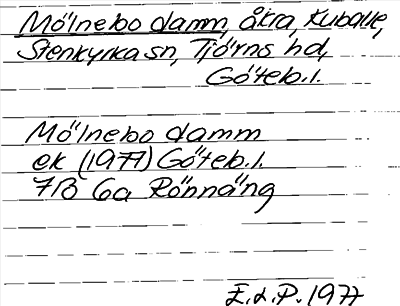 Mölnebo damm, åkra, Kuballe,
Stenkyrka sn, Tjörns hd,
Göteb. l.
Mölnebo damm
ek (1977) Göteb. l.
7B 6a Rönnäng
E.d.P. 1977